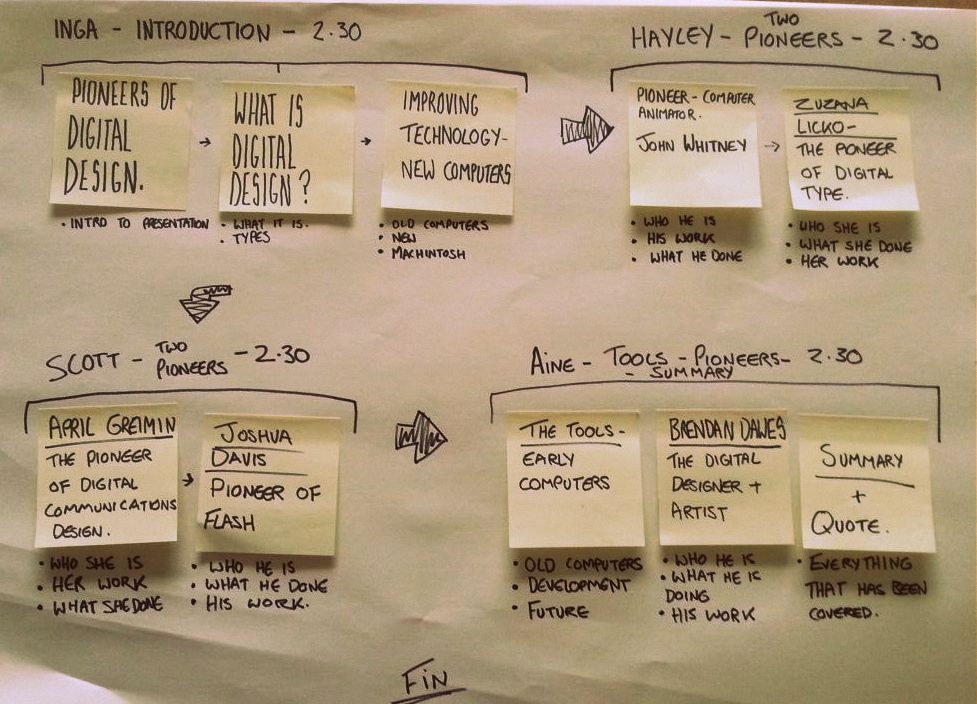 INGA - INTRODUCTION - 2.30
PIONEERS OF
DIGITAL
DESIGN.
• INTRO TO PRESENTATION
WHAT IS
DIGITAL
DESIGN?
• WHAT IT IS.
• TYPES
IMPROVING
TECHNOLOGY-
NEW COMPUTERS
• OLD COMPUTERS
• NEW
• MACHINTOSH
HAYLEY - TWO PIONEERS - 2.30
PIONEER - COMPUTER
ANIMATOR.
JOHN WHITNEY
• WHO HE IS
• HIS WORK
• WHAT HE DONE
ZUZANA
LICKO-
THE PONEER
OF DIGITAL
TYPE.
• WHO SHE IS
• WHAT SHE DONE
• HER WORK
SCOTT - TWO PIONEERS - 2.30
APRIL GREIMIN
THE PIONEER
OF DIGITAL
COMMUNICATIONS
DESIGN.
• WHO SHE IS
• HER WORK
• WHAT SHE DONE
JOSHUA
DAVIS
PIONEER OF
FLASH
• WHO HE IS
• WHAT HE DONE
• HIS WORK.
AINE - TOOLS - PIONEERS- 2.30
- SUMMARY
THE TOOLS-
EARLY
COMPUTERS
• OLD COMPUTERS
• DEVELOPMENT
• FUTURE
BRENDAN DAWES
THE DIGITAL
DESIGNER +
ARTIST
• WHO HE IS
• WHAT HE IS
DOING
• HIS WORK
SUMMARY
+
QUOTE.
• EVERYTHING
THAT HAS BEEN
COVERED.
FIN